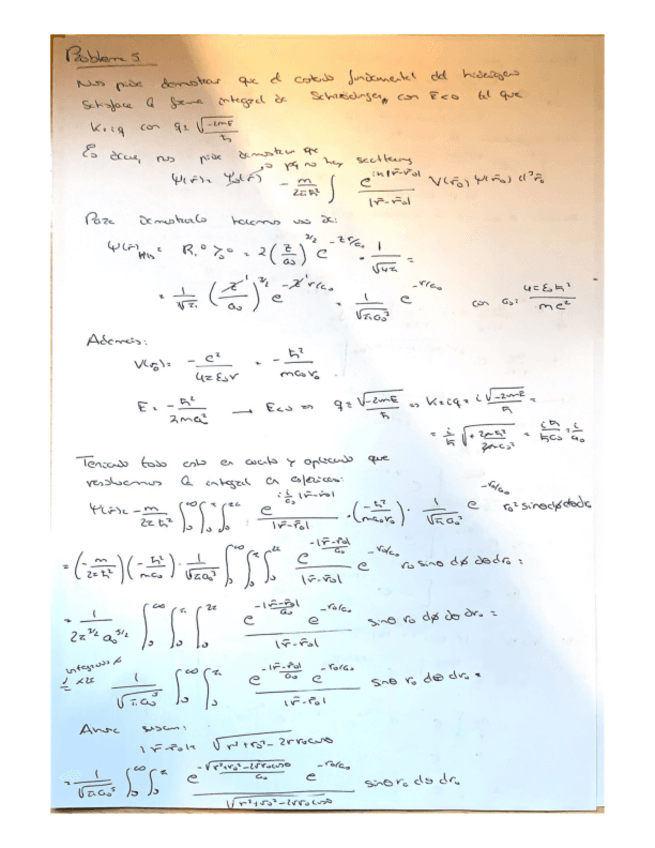 Problema 5
Nos pide demostrar que el estado fundamental del hidrógeno
satisface la forma integral de Schrödinger, con E<0 tal que
K=iq con q= √(-2mE)/ħ
Es decir, nos pide demostrar que
→ pq no hay scattering
Ψ(r̄)= Ψ₀(r̄) - m/(2πħ²) ∫ e^(ik|r̄-r̄₀|)/|r̄-r̄₀| V(r̄₀) Ψ(r̄₀) d³r̄₀
Para demostrarlo hacemos uso de:
= 2 (Z/a₀)^(3/2) e^(-Zr/a₀) · 1/√(4π) =
= 1/√π (Z/a₀)^(3/2) e^(-Zr/a₀) = 1/√(πa₀³) e^(-r/a₀) con a₀= 4πε₀ħ²/(me²)
Además:
V(r₀)= - e²/(4πε₀r) = - ħ²/(ma₀r₀)
E= - ħ²/(2ma₀²) → E<0 ⇒ q= √(-2mE)/ħ ⇒ K=iq = i √(-2mE)/ħ =
= i/ħ √(+2mħ²/(2ma₀²)) = iħ/(ħa₀) = i/a₀
Teniendo todo esto en cuenta y aplicando que
resolvemos la integral en esféricas:
Ψ(r̄)= - m/(2πħ²) ∫₀^∞ ∫₀^π ∫₀^2π e^(i·i/a₀|r̄-r̄₀|)/|r̄-r̄₀| · (-ħ²/(ma₀r₀)) · 1/√(πa₀³) e^(-r₀/a₀) r₀² sinθ dϕ dθ dr₀
= (-m/(2πħ²)) (-ħ²/(ma₀)) · 1/√(πa₀³) ∫₀^∞ ∫₀^π ∫₀^2π e^(-|r̄-r̄₀|/a₀)/|r̄-r̄₀| e^(-r₀/a₀) r₀ sinθ dϕ dθ dr₀ =
= 1/(2π^(3/2) a₀^(5/2)) ∫₀^∞ ∫₀^π ∫₀^2π e^(-|r̄-r̄₀|/a₀) e^(-r₀/a₀)/|r̄-r̄₀| sinθ r₀ dϕ dθ dr₀ =
integramos ϕ
= 1/√(πa₀⁵) ∫₀^∞ ∫₀^π e^(-|r̄-r̄₀|/a₀) e^(-r₀/a₀)/|r̄-r̄₀| sinθ r₀ dθ dr₀ =
|r̄-r̄₀|= √(r²+r₀²-2rr₀cosθ)
= 1/√(πa₀⁵) ∫₀^∞ ∫₀^π e^(-√(r²+r₀²-2rr₀cosθ)/a₀) e^(-r₀/a₀)/√(r²+r₀²-2rr₀cosθ) sinθ r₀ dθ dr₀